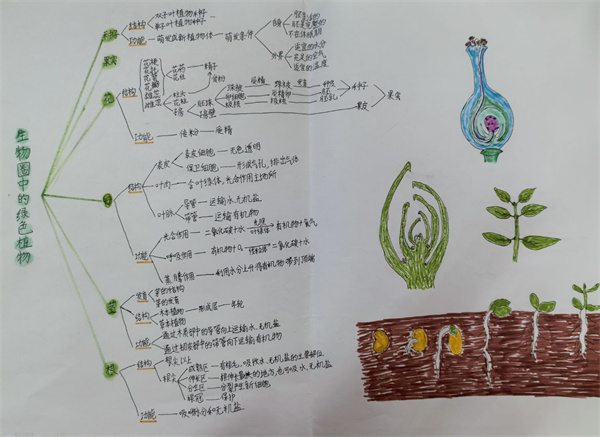 生物圈中的绿色植物
种子
结构 双子叶植物种子
单子叶植物种子
功能 萌发成新植物体 萌发条件
自身 胚是活的
胚是完整的
不在休眠期
外界 适宜的水分
充足的空气
适宜的温度
果实
花
结构
花梗
花托
花萼
花瓣
雄蕊 花药 精子
花丝
雌蕊 柱头 传粉
花柱
子房 胚珠
珠被 种皮
受精
卵细胞 受精卵 胚
极核 胚乳
发育
种子
子房壁 果皮
果实
功能 传粉 受精
叶
结构
表皮 表皮细胞 无色透明
保卫细胞 形成气孔 排出气体
叶肉 含叶绿体,光合作用主场所
叶脉 导管 运输水无机盐
筛管 运输有机物
功能
光合作用 二氧化碳+水 光能 叶绿体 有机物+氧气
呼吸作用 有机物+O₂ 二氧化碳+水
蒸腾作用
茎
发育 芽的结构
芽的发育
结构 木本植物 形成层 年轮
草本植物
功能 通过木质部中的导管向上运输水、无机盐
通过韧皮部中的筛管向下运输有机物
根
结构 根尖以上
根尖
成熟区 有根毛,吸收水、无机盐的主要部位
伸长区
分生区 分裂产生新细胞
根冠 保护
功能 吸收水分和无机盐